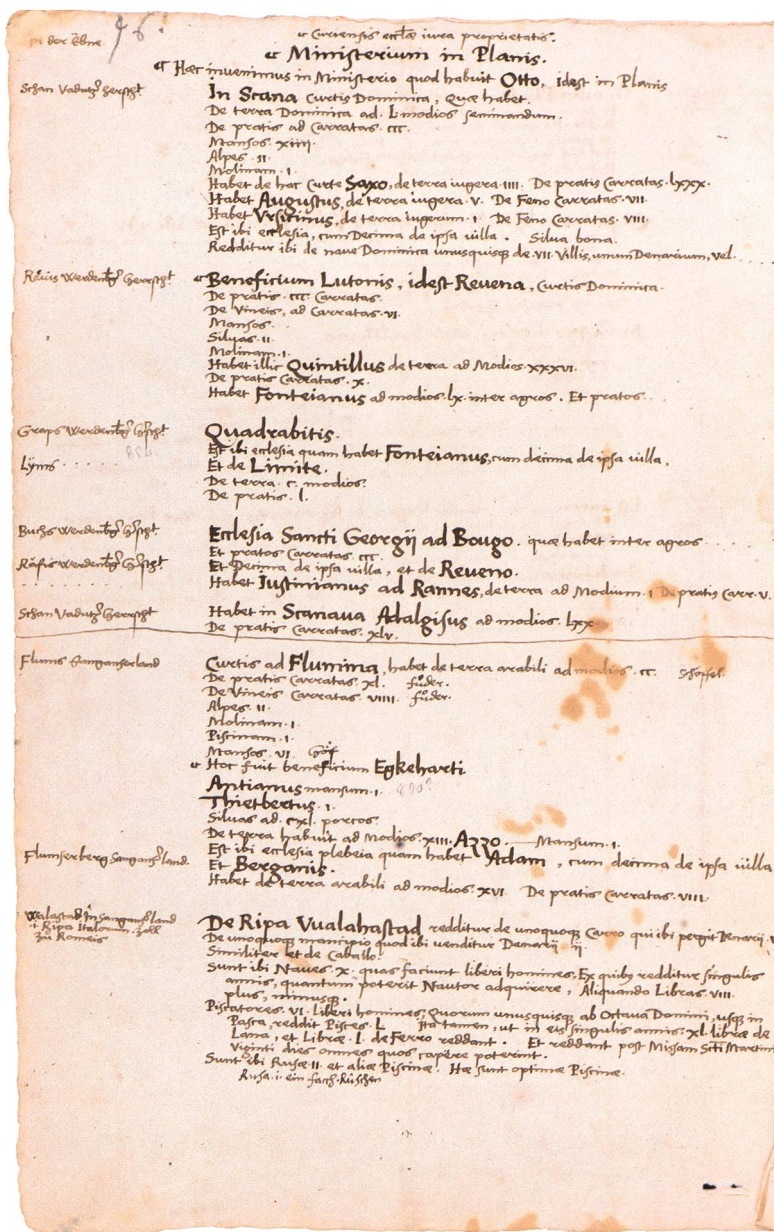 in der Ebne
96.
Curiensis eccłae iura proprietatis.
Ministerium in Planis.
Haec invenimus in Ministerio quod habuit Otto, idest in Planis
Schan Vadutz herscht
In Scana Curtis Dominica, Quae habet.
De terra Dominica ad. L modios seminandum.
De pratis ad Carratas. ccc.
Mansos. xiiii.
Alpes. ii.
Molinam. i.
Habet de hac Curte Saxo, de terra iugera. iiii. De pratis Carratas. lxxx.
Habet Augustus, de terra iugera. v. De Feno Carratas. vii.
Habet Vrsicinus, de terra iugerum. i. De Feno Carratas. viii.
Est ibi ecclesia, cum Decima de ipsa uilla. Silua bona.
Redditur ibi de naue Dominica unusquisq; de. vii. Villis, unum Denarium, vel . . .
Räuis Werdenbg Herrscht
Beneficium Lutonis, idest Reuena, Curtis Dominica.
De pratis. ccc. Carratas.
De Vineis, ad Carratas. vi.
Mansos.
Siluas. ii.
Molinam. i.
Habet illic Quintillus de terra ad Modios. xxxvi.
De pratis Carratas. x.
Habet Fonteianus ad modios. lx. inter agros. Et pratos . .
Graps Werdenbg Hscht
Quadrabitis.
Est ibi ecclesia quam habet Fonteianus, cum decima de ipsa uilla,
Lyms . . . . .
Et de Limite.
De terra. c. modios.
De pratis. l.
Buchs Werdenbg Hscht
Ecclesia Sancti Georgij ad Bougo. quae habet inter agros . . . .
Et pratos Carratas. ccc.
Räfis Werdenbg Hscht
Et Decima de ipsa uilla, et de Reueno.
Habet Iustinianus ad Rannes, de terra ad Modium. i De pratis Carr. v.
Schan Vadutz Herrscht
Habet in Scanaua Adalgisus ad modios. lxx
De pratis Carratas. xlv.
Flums Sanganserland
Curtis ad Flumina, habet de terra arabili ad modios. cc. Schöffel.
De pratis Carratas. xl. füder.
De Vineis Carratas. viiii. füder.
Alpes. ii.
Molinam. i.
Piscinam. i.
Mansos. vi. Höf
Hoc fuit beneficium Egkeharti
Antianus mansum. i.
Thietbertus. i.
Siluas ad. cxl. porcos.
De terra habuit ad Modios. xiii. Azzo. Mansum. i.
Est ibi ecclesia plebeia quam habet Adam, cum decima de ipsa uilla
Flumserberg Sangansland.
Et Berganis.
Habet de terra arabili ad modios. xvi. De pratis Carratas. viii.
Walastad In Sangansland
.i. Ripa Italorum. zoll
zů Romeis
De Ripa Vualahastad redditur de unoquoq; Carro qui ibi pergit Denarij
De unoquoq; mancipio quod ibi venditur Denarij ij
Similiter et de Caballo.
Sunt ibi Naues. x. quas faciunt liberi homines, Ex quibus redditur singulis
annis, quantum poterit Nautor adquirere, Aliquando Libras. viii.
plus, minusque.
Piscatores. vi. Liberi homines, Quorum unusquisq; ab Octaua Domini, usq; in
Pasca, reddit Pisces. L Ita tamen, ut in eis singulis annis. xl. librae de
Lana, et Librae. l. de Ferro reddant. Et reddant post Missam Scti Martini
Viginti dies omnes quos capere poterint.
Sunt ibi Rusae. ii. et aliae Piscinae. Hae sunt optimae Piscinae.
Rusa. i. ein fach. Rüschen